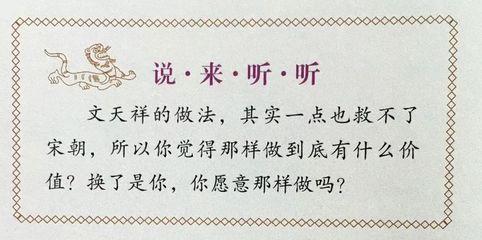 说·来·听·听
文天祥的做法，其实一点也救不了
宋朝，所以你觉得那样做到底有什么价
值？换了是你，你愿意那样做吗？